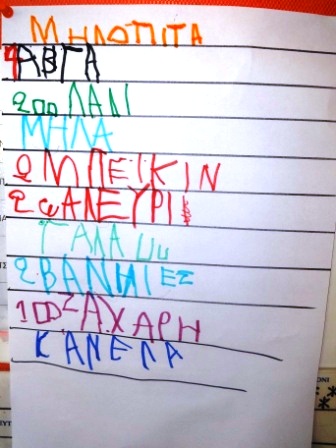 ΜΗΛΟΠΙΤΑ
4ΑΒΓΑ
200 ΛΑΔΙ
ΜΗΛΑ
2 ΜΠΕΙΚΙΝ
ΑΛΕΥΡΙ
ΓΑΛΑ
2 ΒΑΝΙΛΙΕΣ
100 ΖΑΧΑΡΗ
ΚΑΝΕΛΑ